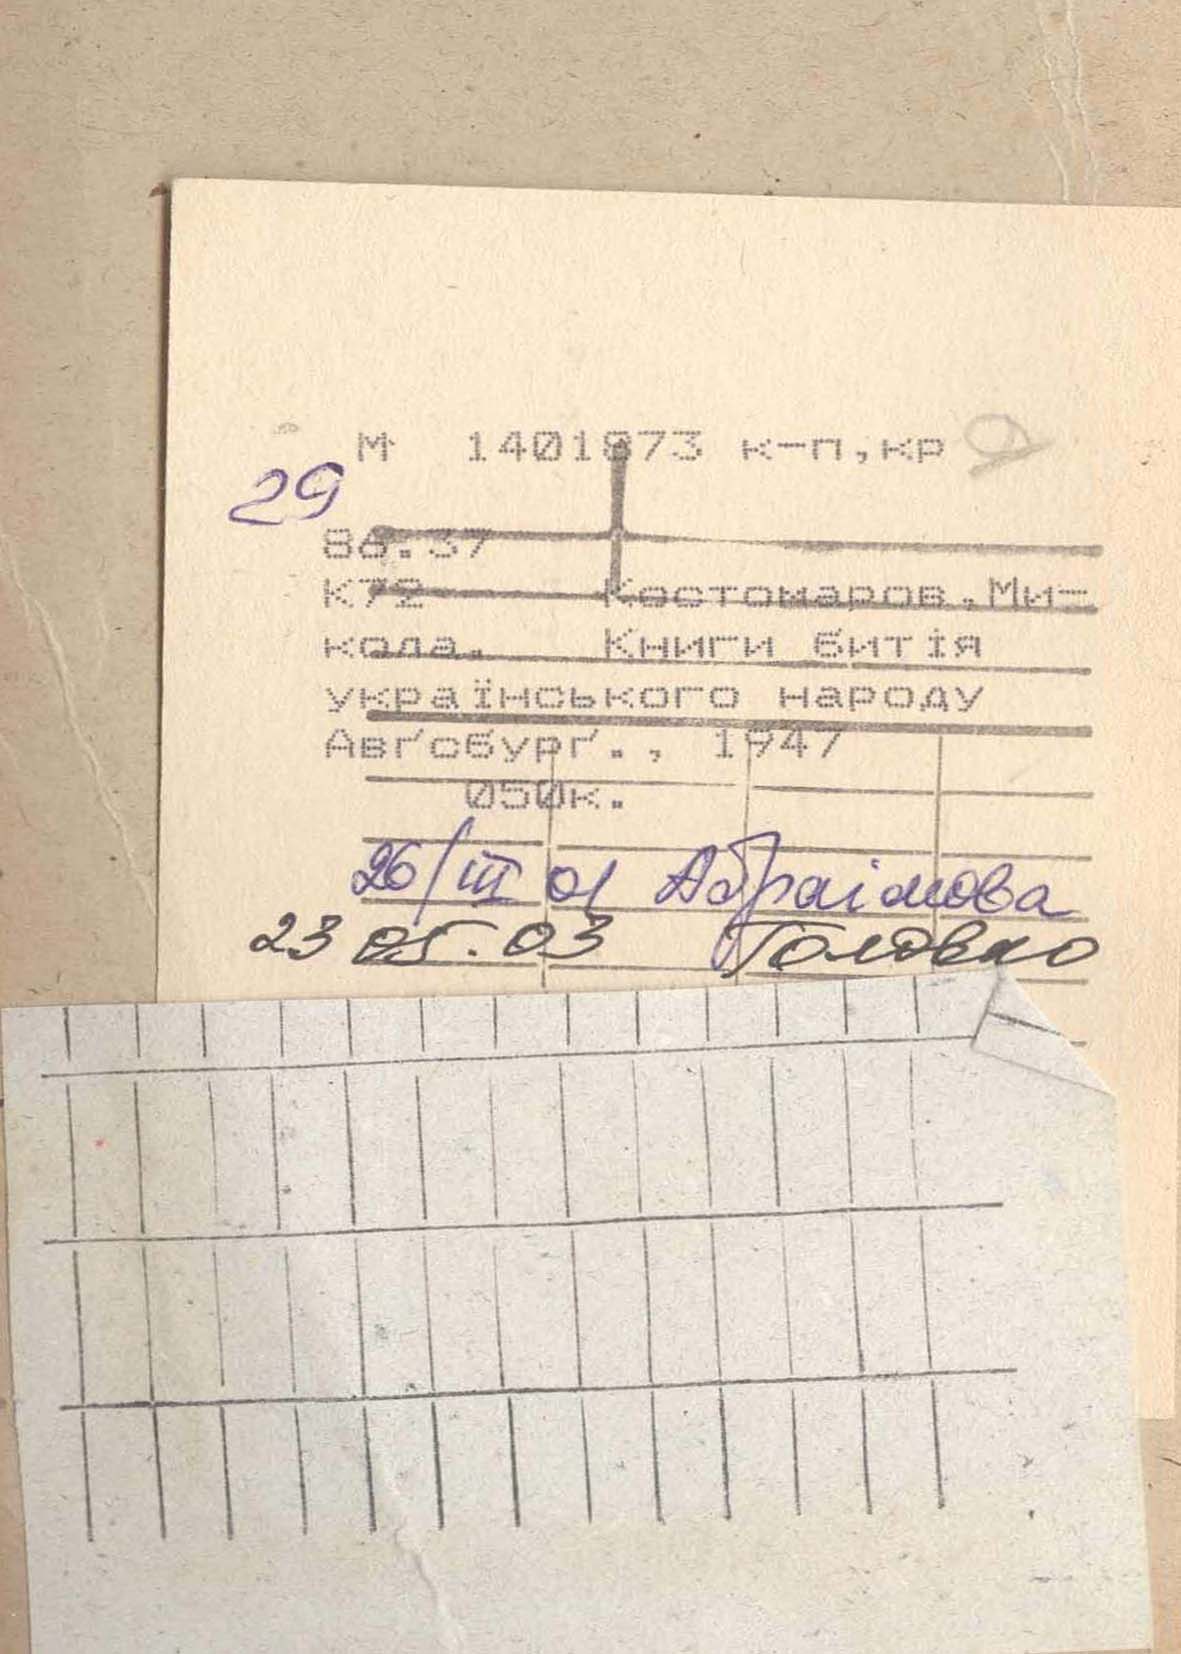 М 1401873 к-п,кр
29
86.37
К72 Костомаров,Ми-
кола. Книги битія
українського народу
Авґсбурґ., 1947
050к.
26/III 01 Абраімова
23 05.03 Головко